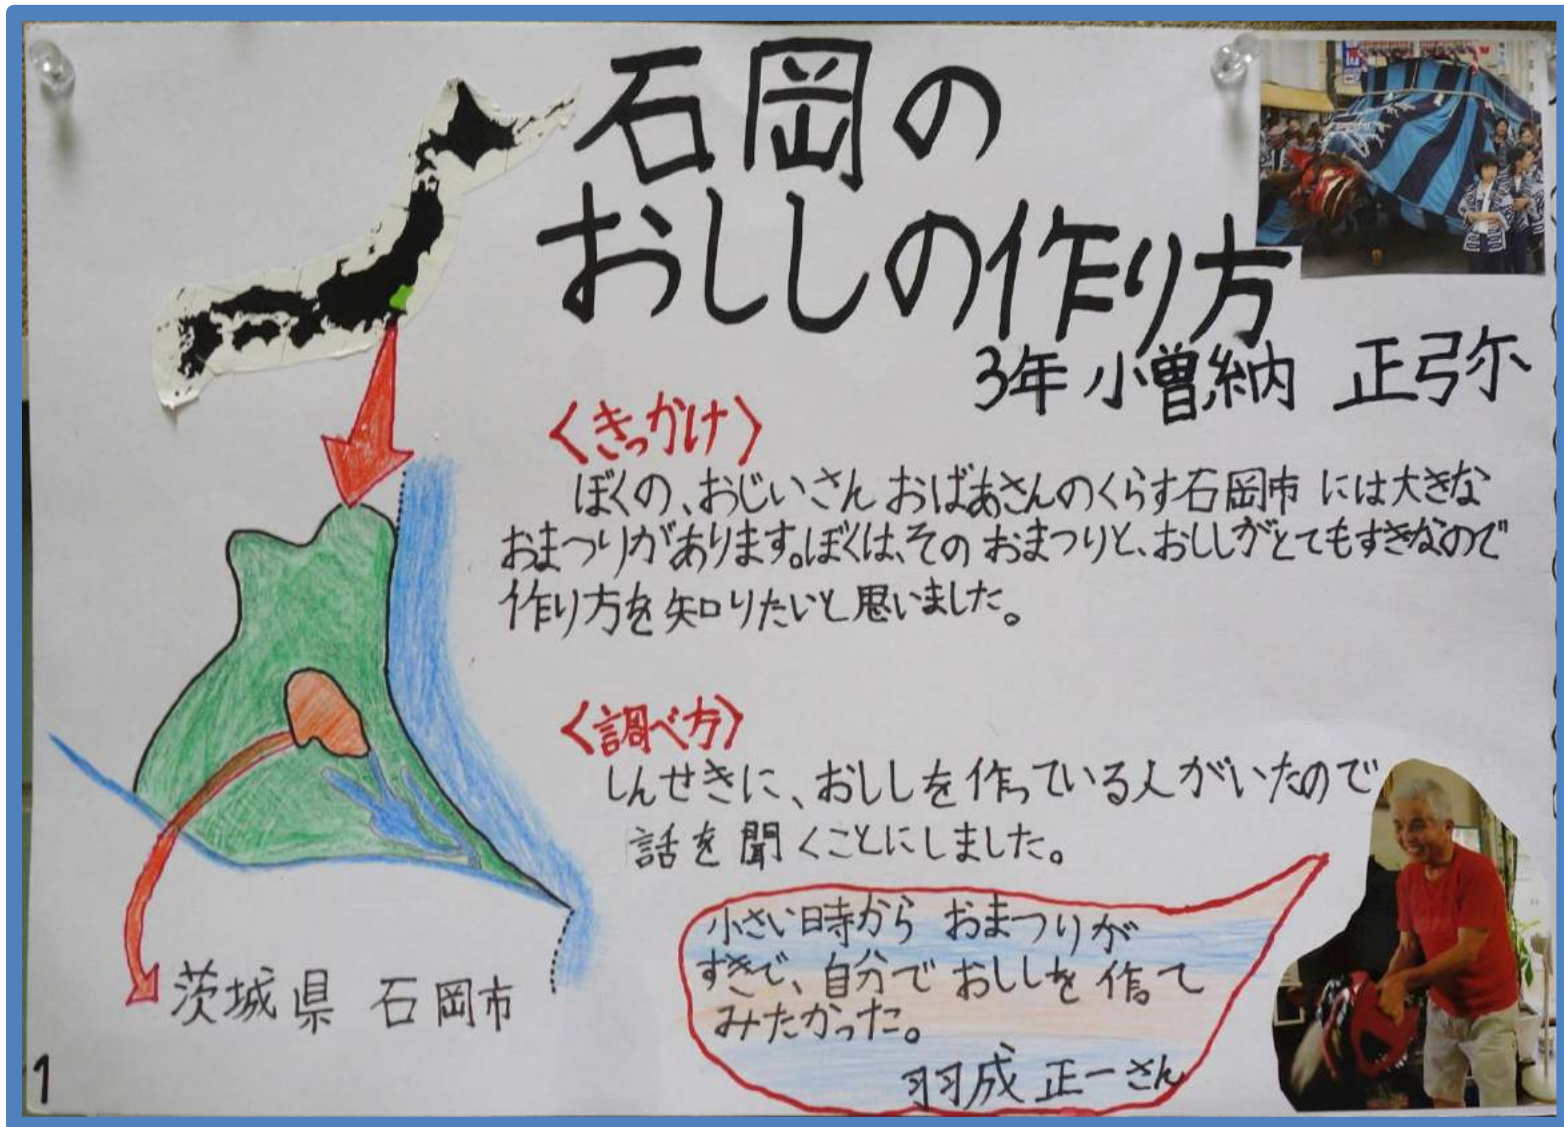 石岡の
おししの作り方
3年 小曽納 正弥
〈きっかけ〉
ぼくの、おじいさん おばあさんのくらす石岡市 には大きな
おまつりがあります。ぼくは、その おまつりと、おししがとてもすきなので
作り方を知りたいと思いました。
〈調べ方〉
しんせきに、おししを作っている人がいたので
話を聞くことにしました。
小さい時から おまつりが
すきで、自分で おししを 作って
みたかった。
羽成 正一さん
茨城県 石岡市
1